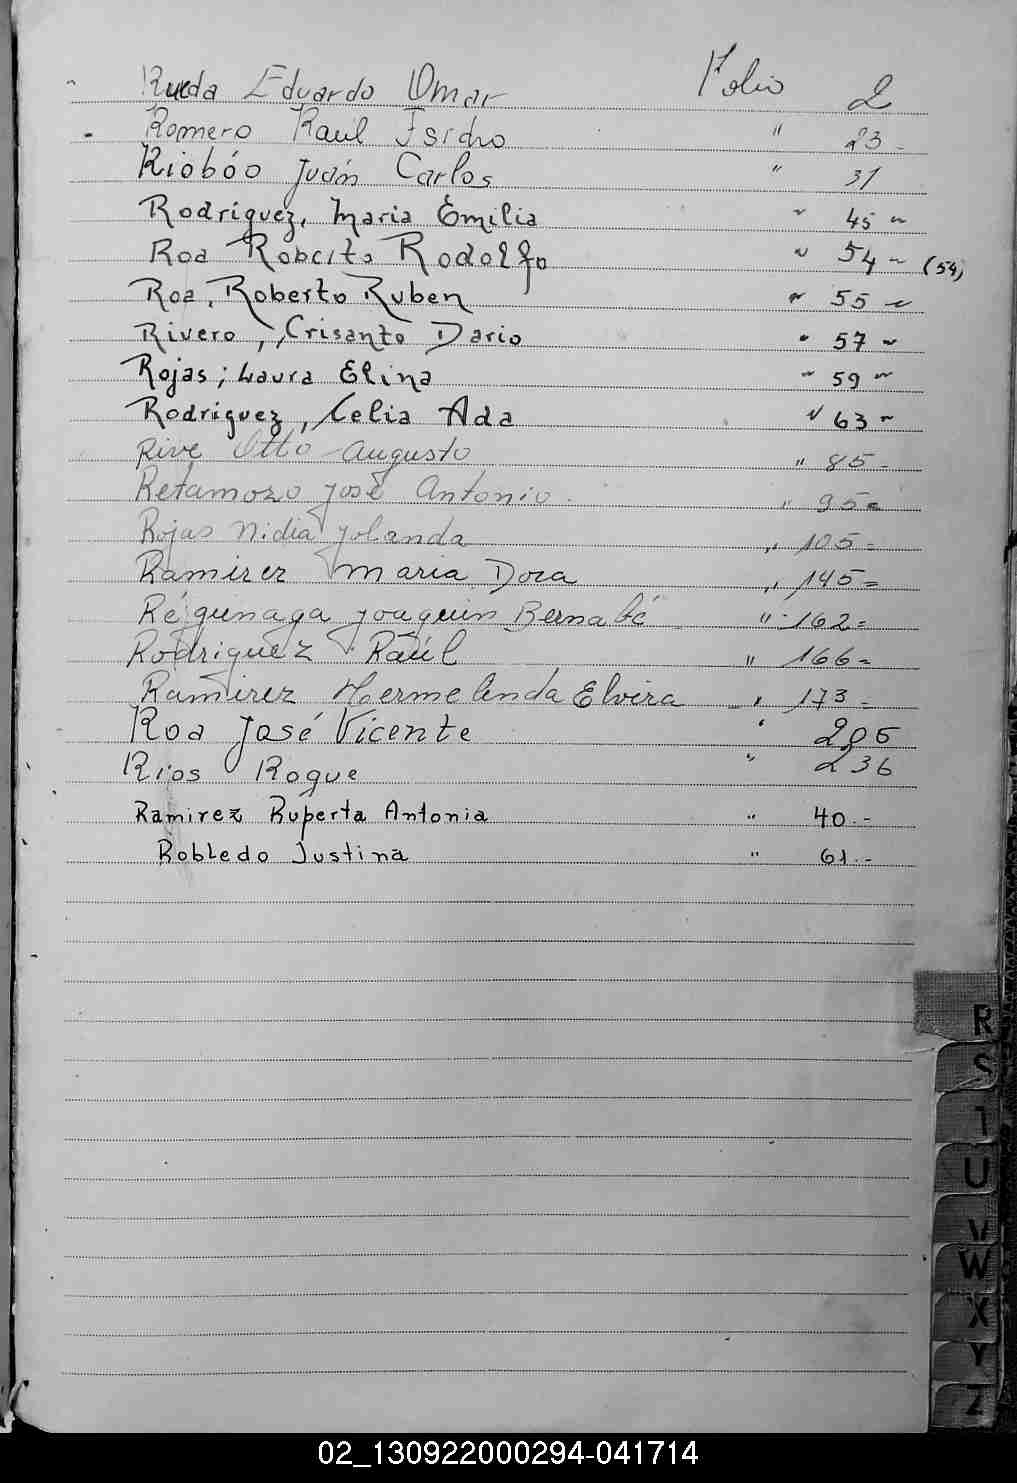 Rueda Eduardo Omar Folio 2
Romero Raúl Isidro " 23 -
Riobóo Juán Carlos " 31
Rodríguez, Maria Emilia " 45 "
Roa Roberto Rodolfo " 54 " (54)
Roa, Roberto Ruben " 55 "
Rivero, Crisanto Dario " 57 "
Rojas; Laura Elina " 59 "
Rodríguez, Celia Ada " 63 "
Rive Otto Augusto " 85 -
Retamozo José Antonio " 95 =
Rojas Nidia Yolanda " 105 =
Ramirez Maria Dora " 145 =
Régunaga Joaquin Bernabé " 162 =
Rodriguez Raúl " 166 =
Ramirez Hermelinda Elvira " 173 =
Roa José Vicente " 205
Rios Roque " 236
Ramirez Ruperta Antonia " 40.-
Robledo Justina " 61.-
R
S
T
U
V
W
X
Y
Z
02_130922000294-041714